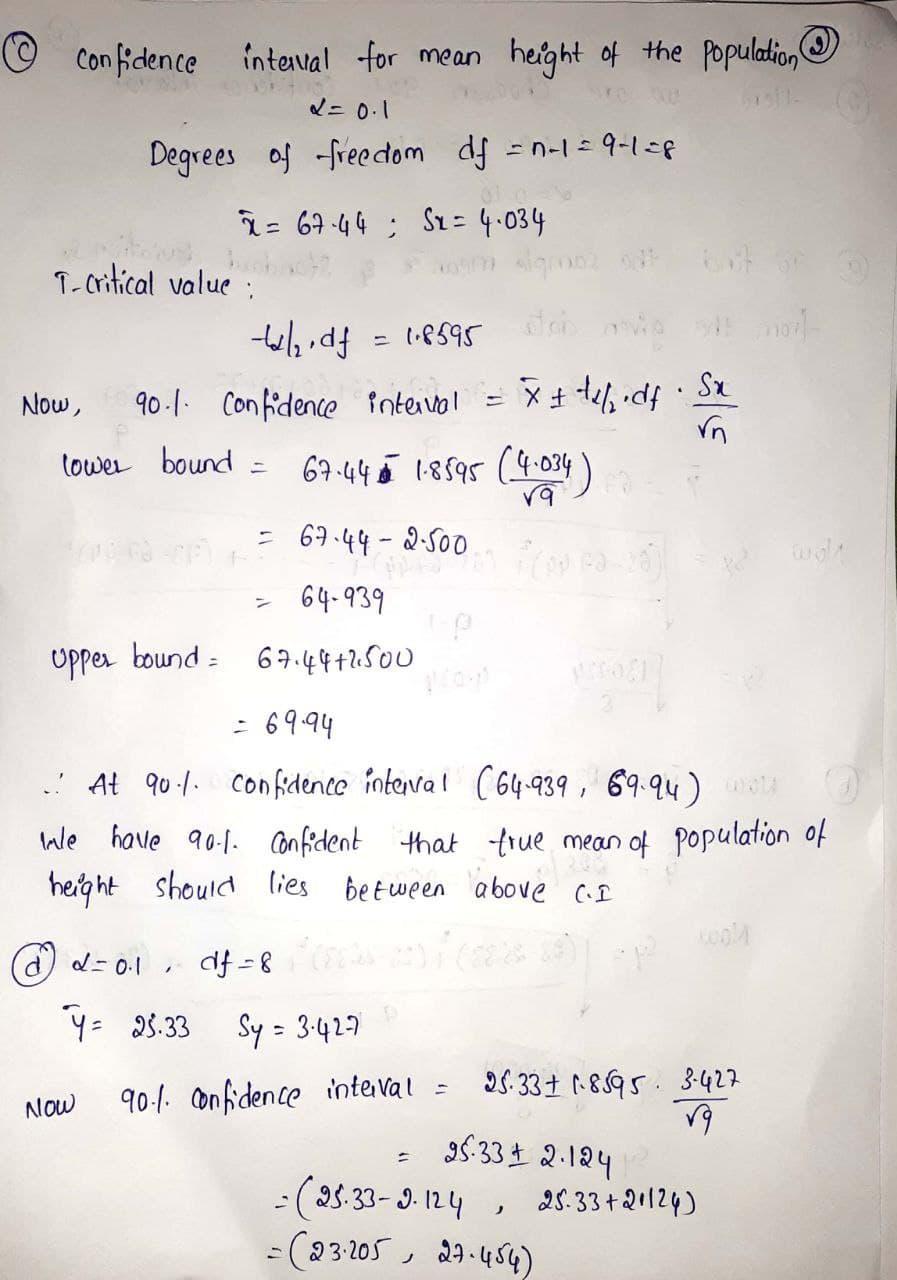 (c) Confidence interval for mean height of the population (2)
α = 0.1
Degrees of freedom df = n-1 = 9-1 = 8
x̄ = 67.44 ; Sx = 4.034
T-critical value :
tα/2,df = 1.8595
Now, 90%. Confidence interval = x̄ ± tα/2,df . Sx/√n
lower bound = 67.44 - 1.8595 (4.034/√9)
= 67.44 - 2.500
= 64.939
Upper bound = 67.44+2.500
= 69.94
∴ At 90%. Confidence interval (64.939, 69.94)
We have 90%. Confident that true mean of population of
height should lies between above C.I
(d) α = 0.1, df = 8
ȳ = 25.33 Sy = 3.427
Now 90%. Confidence interval = 25.33 ± 1.8595 . 3.427/√9
= 25.33 ± 2.124
= (25.33 - 2.124, 25.33 + 2.124)
= (23.205, 27.454)